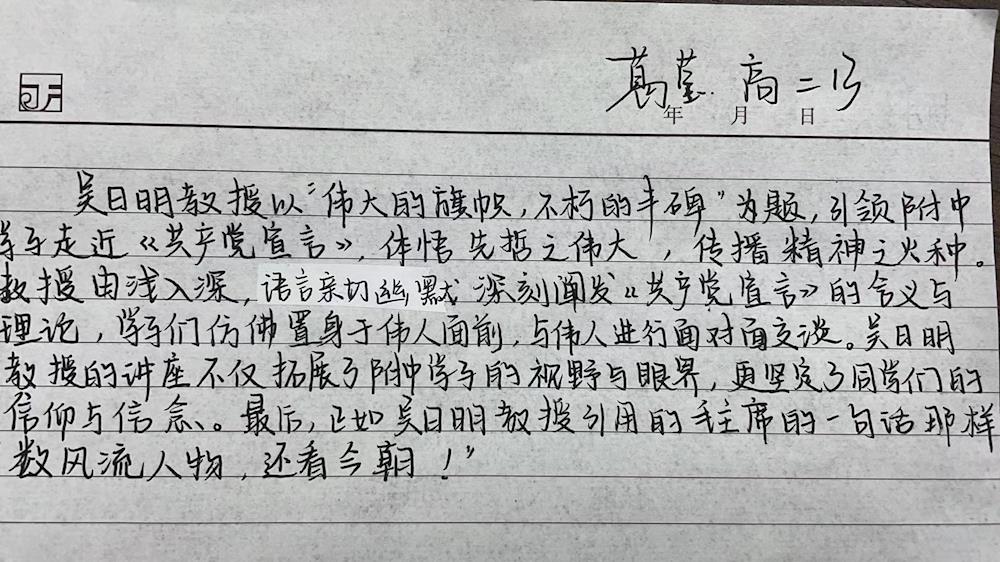 葛莹 高二13
年 月 日
吴日明教授以“伟大的旗帜,不朽的丰碑”为题,引领附中
学子走近《共产党宣言》,体悟先哲之伟大,传播精神之火种。
教授由浅入深,语言亲切幽默 深刻阐发《共产党宣言》的含义与
理论,学子们仿佛置身于伟人面前,与伟人进行面对面交谈。吴日明
教授的讲座不仅拓展了附中学子的视野与眼界,更坚定了同学们的
信仰与信念。最后,正如吴日明教授引用的毛主席的一句话那样
数风流人物,还看今朝!”